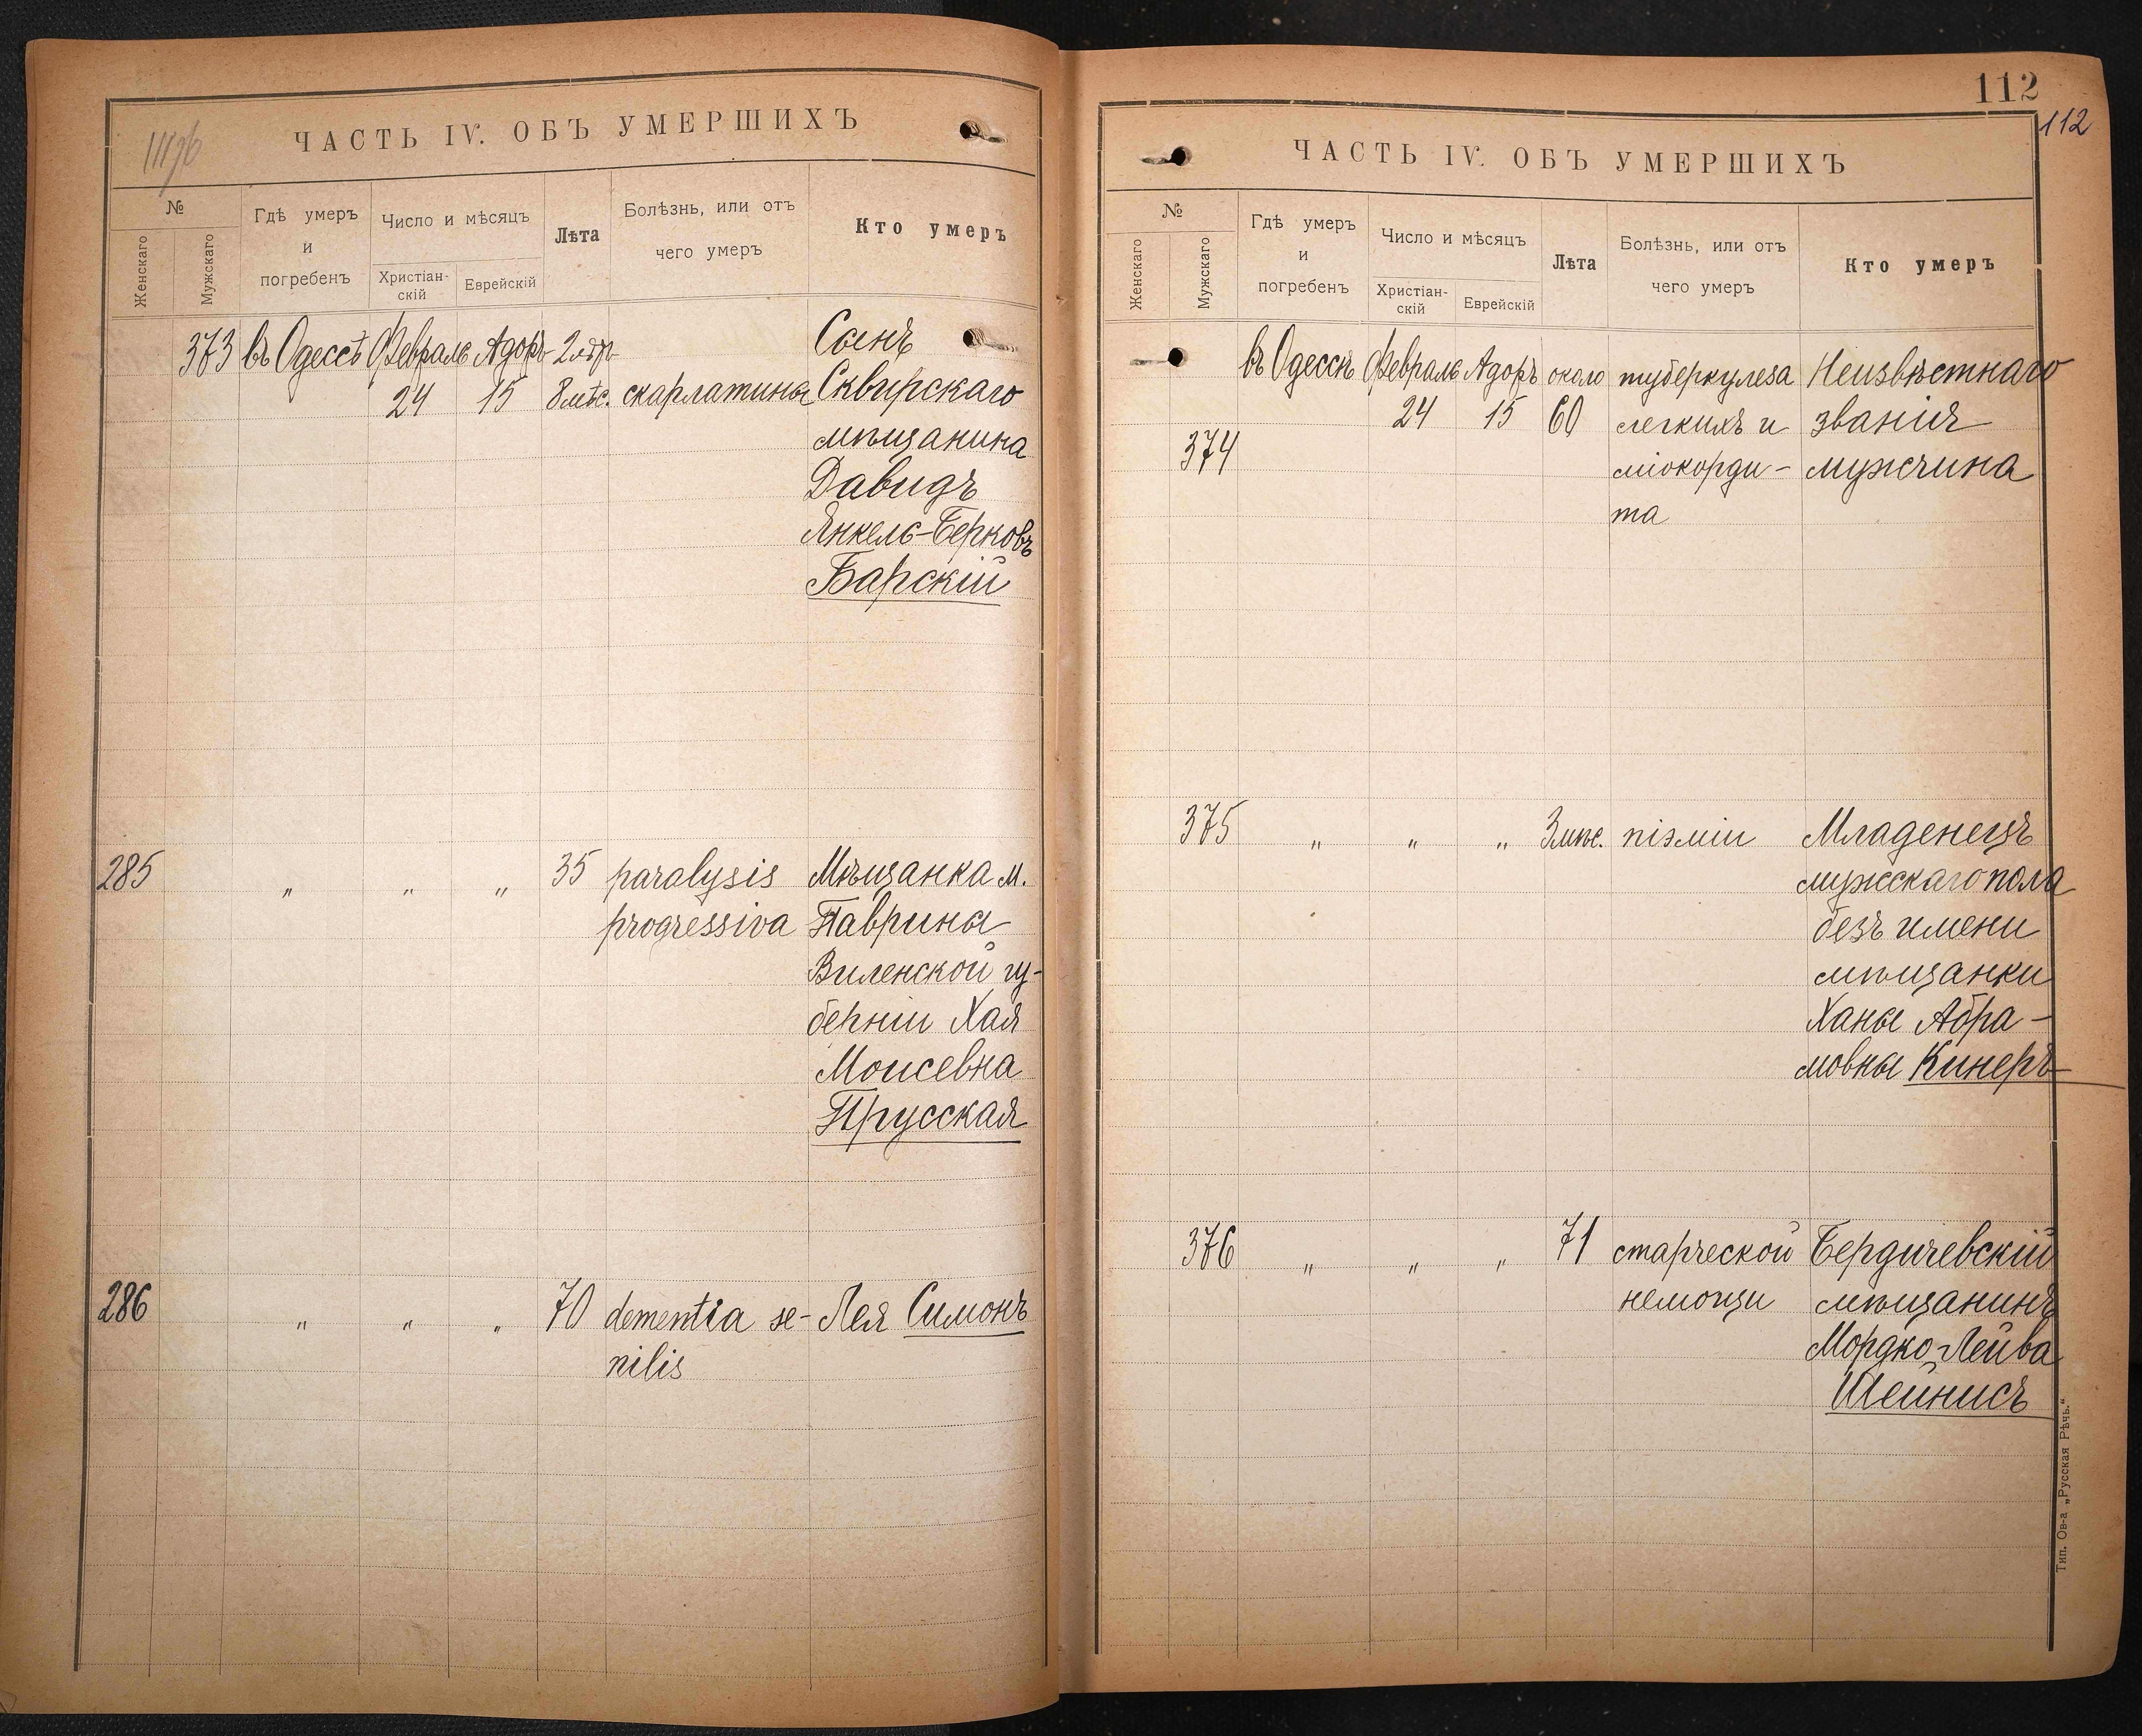 ЧАСТЬ IV. ОБЪ УМЕРШИХЪ
№
Женскаго
Мужскаго
Гдѣ умеръ
и
погребенъ
Число и мѣсяцъ
Христіан-
скій
Еврейскій
Лѣта
Болѣзнь, или отъ
чего умеръ
Кто умеръ
373 въ Одессѣ Февраль Адоръ 2 лѣтъ Сынъ
24 15 8 мѣс. скарлатины Сквирскаго
мѣщанина
Давидъ
Янкель-Берковъ
Барскій
285 „ „ „ 35 paralysis Мѣщанка м.
progressiva Таврины
Виленской гу-
берніи Хая
Моисевна
Прусская
286 „ „ „ 70 dementia se- Лея Симонъ
nilis
112
112
ЧАСТЬ IV. ОБЪ УМЕРШИХЪ
№
Женскаго
Мужскаго
Гдѣ умеръ
и
погребенъ
Число и мѣсяцъ
Христіан-
скій
Еврейскій
Лѣта
Болѣзнь, или отъ
чего умеръ
Кто умеръ
въ Одессѣ Февраль Адоръ около туберкулеза Неизвѣстнаго
24 15 60 легкихъ и званія
374 міокорди- мужчина
та
375 „ „ „ 3 мѣс. піэміи Младенецъ
мужскаго пола
безъ имени
мѣщанки
Ханы Абра-
мовны Кинеръ
376 „ „ „ 71 старческой Бердичевскій
немощи мѣщанинъ
Мордко-Лейва
Шейнисъ
Тип. Ов-а „Русская Рѣчь.“